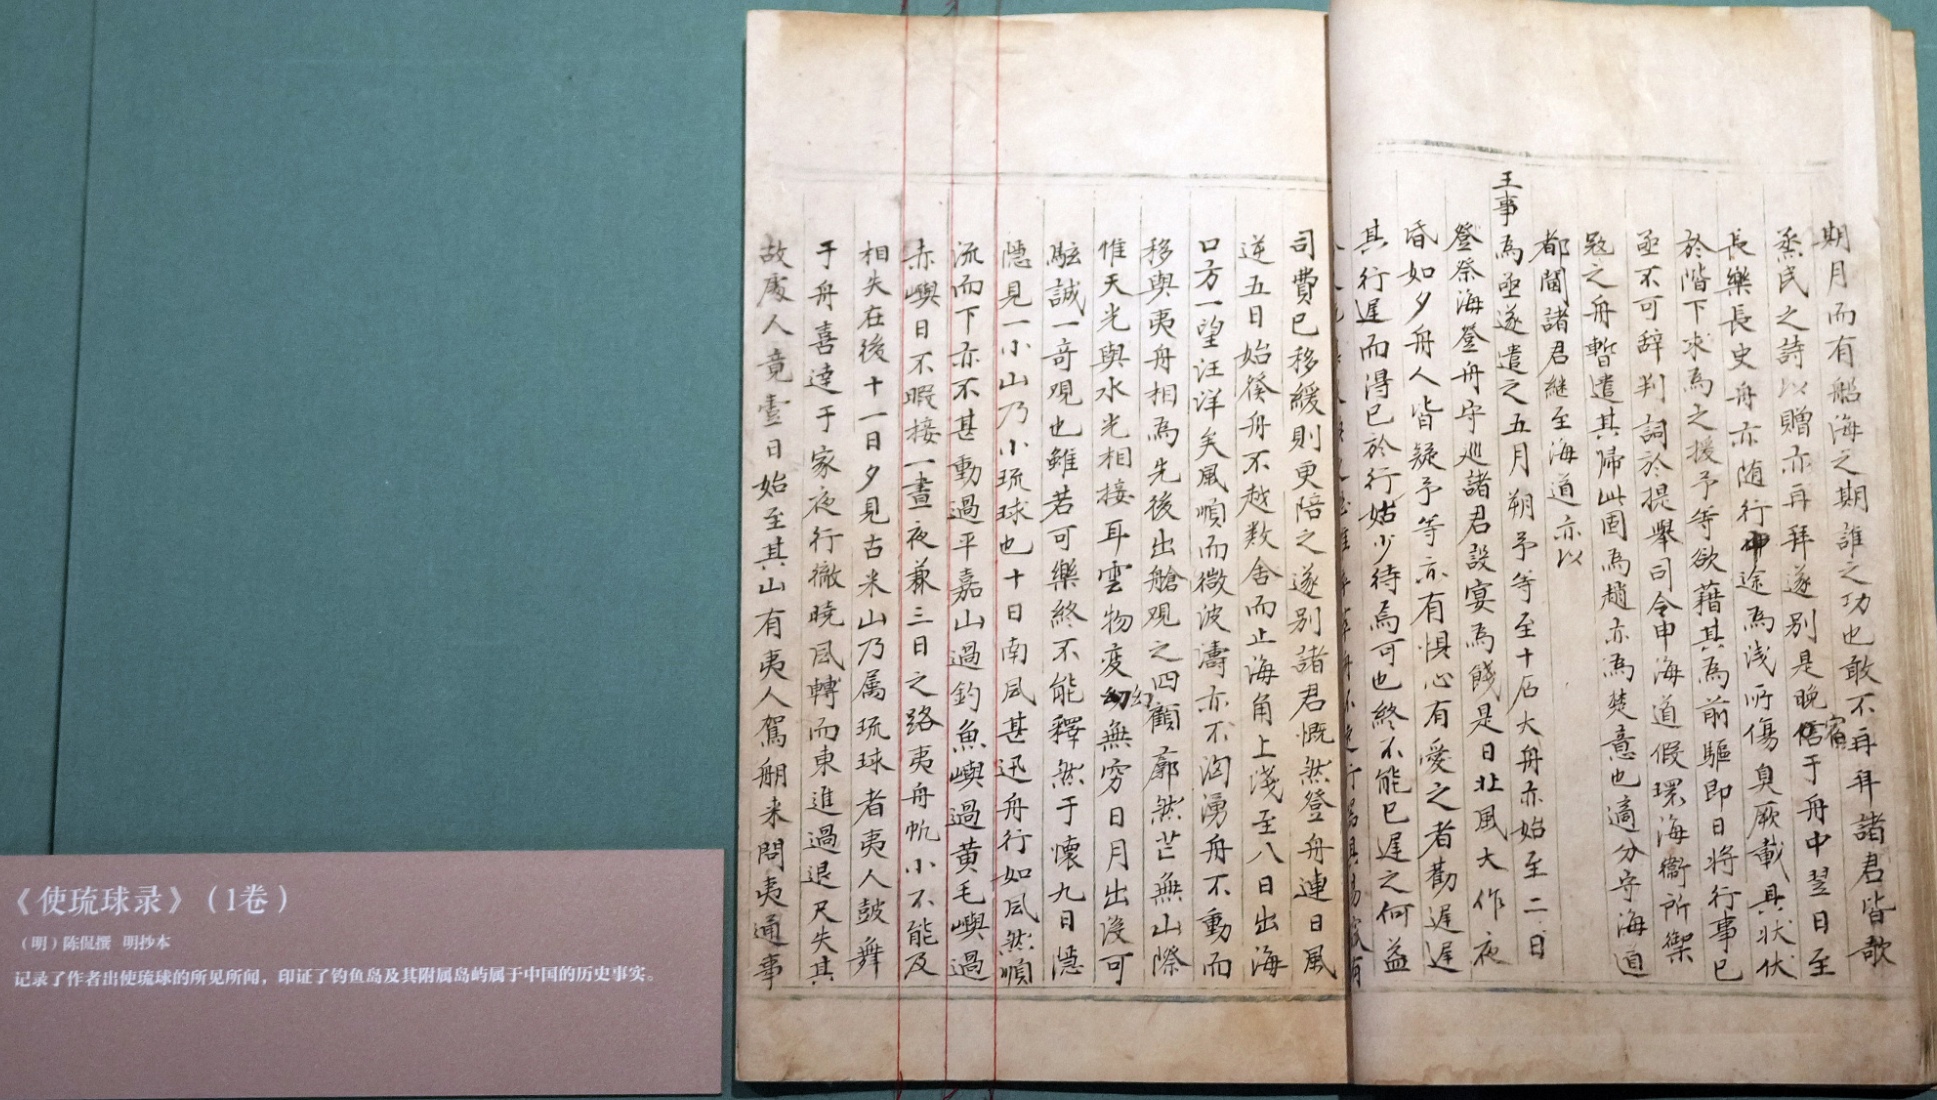 期月而有船海之期誰之功也敢不再拜諸君皆歌
烝民之詩以贈亦再拜遂别是晚宿于舟中翌日至
長樂長史舟亦随行中途為浅所傷臭厥載具状伏
於階下求為之援予等欲藉其為前驅即日将行事已
亟不可辞判詞於提舉司令申海道假環海衞所禦
冦之舟暫遣其歸此固為趙亦為楚意也適分守海道
都閫諸君継至海道亦以
王事為亟遂遣之五月朔予等至十石大舟亦始至二日
登祭海登舟守巡諸君設宴為餞是日北風大作夜
昏如夕舟人皆疑予等亦有惧心有愛之者勸遲遲
其行遲而得已於行姑少待焉可也終不能已遲之何益
司費已移緩則更陪之遂别諸君慨然登舟連日風
逆五日始發舟不越数舍而止海角上浅至八日出海
口方一望汪洋矣風順而微波濤亦不洶湧舟不動而
移與夷舟相為先後出艙观之四顧廓然茫無山際
惟天光與水光相接耳雲物变幻無窮日月出没可
駭誠一奇观也雖若可樂終不能釋然于懷九日隱
隱見一小山乃小琉球也十日南风甚迅舟行如风然順
流而下亦不甚動過平嘉山過釣魚嶼過黄毛嶼過
赤嶼日不暇接一晝夜兼三日之路夷舟帆小不能及
相失在後十一日夕見古米山乃属琉球者夷人鼓舞
于舟喜達于家夜行徹曉风轉而東進過退尺失其
故處人竟壹日始至其山有夷人駕舡来問夷通事
《使琉球录》（1卷）
（明）陈侃撰 明抄本
记录了作者出使琉球的所见所闻，印证了钓鱼岛及其附属岛屿属于中国的历史事实。